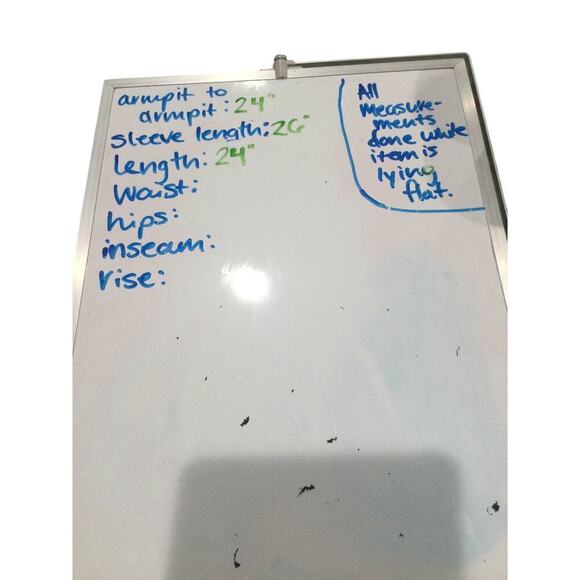 armpit to
armpit: 24"
sleeve length: 26"
Length: 24"
Waist:
hips:
inseam:
rise:
All
measure-
ments
done while
item is
lying
flat.